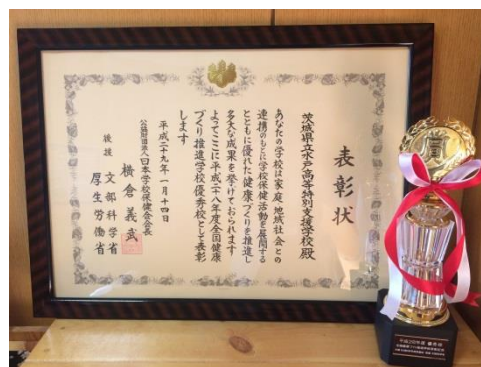 表彰状
茨城県立水戸高等特別支援学校殿
あなたの学校は家庭地域社会との
連携のもとに学校保健活動を展開する
とともに優れた健康づくりを推進し
多大な成果を挙げておられます
よってここに平成二十八年度全国健康
づくり推進学校優秀校として表彰
します
平成二十九年一月十四日
公益財団法人日本学校保健会会長
横倉義武
後援 文部科学省
厚生労働省